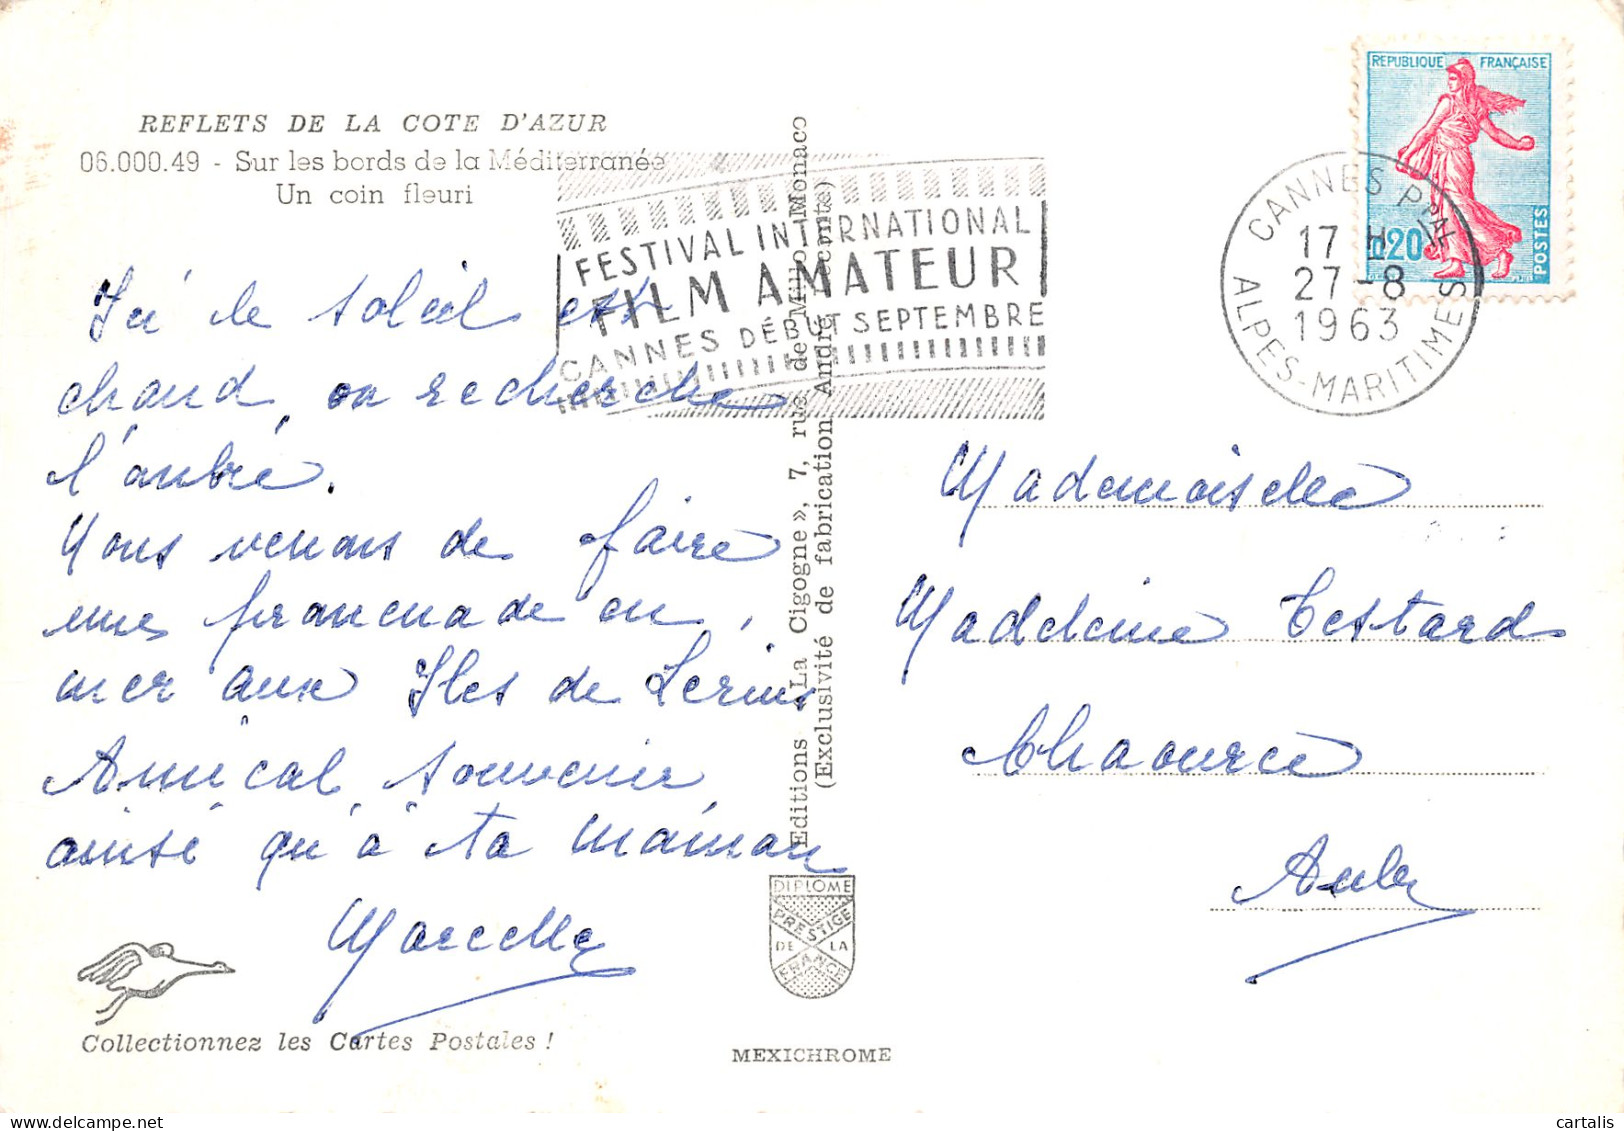 REFLETS DE LA COTE D'AZUR
06.000.49 - Sur les bords de la Méditerranée
Un coin fleuri
Ici le soleil est
chaud, on recherche
l'ombre.
Nous venons de faire
une promenade en
mer aux Iles de Lerins
Amical souvenir
ainsi qu'à ta maman
Marcelle
Collectionnez les Cartes Postales !
Editions «La Cigogne», 7, rue de Millo, Monaco
(Exclusivité de fabrication André Leconte)
DIPLOME
PRESTIGE
DE LA
FRANCE
MEXICHROME
FESTIVAL INTERNATIONAL
FILM AMATEUR
CANNES DÉBUT SEPTEMBRE
REPUBLIQUE FRANÇAISE
0,20
POSTES
CANNES PPAL
17 H
27-8
1963
ALPES-MARITIMES
Mademoiselle
Madeleine Testard
Chaource
Aube
cartalis
www.delcampe.net